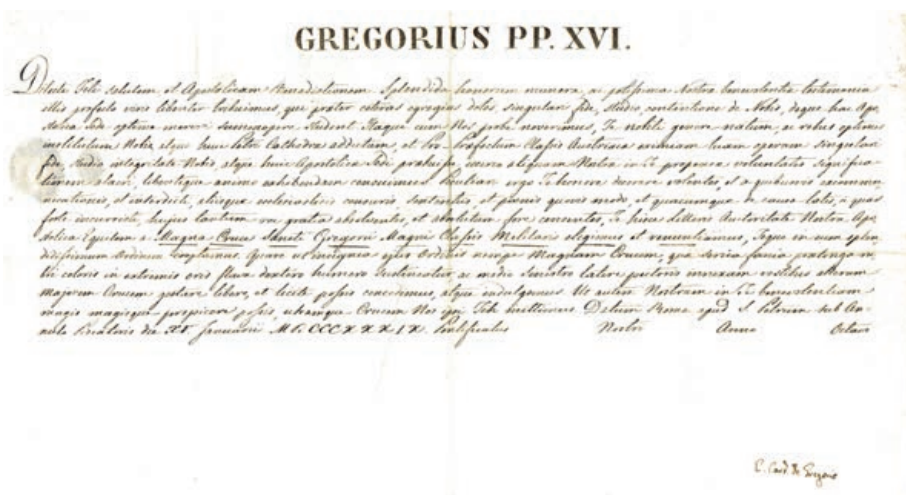 GREGORIUS PP. XVI.
Dilecte Fili salutem, et Apostolicam Benedictionem. Splendida honorum munera, ac potissima Nostra benevolentia testimonia
illis profecto viris libenter tribuimus, qui præter ceteras egregias dotes, singulari fide, studio, contentione de Nobis, deque hac Apo-
stolica Sede optime mereri summopere student. Itaque cum Nos probe noverimus, Te nobili genere natum, ac rebus optimis
institutum Nobis atque huic Petri Cathedra addictum, et Pro-Præfectum Classis Austriaca eximiam tuam operam singulari
fide, studio integritate Nobis, atque huic Apostolica Sedi præbuisse,
aliquam Nostra in Te propensa voluntatis significa-
tionem alacri, libentique animo exhibendam censuimus. Peculiari ergo Te honore decorare volentes, et a quibusvis excommu-
nicationis, et interdicti, aliisque ecclesiasticis censuris, sententiis, et pœnis quovis modo, et quacumque de causa latis, si quas
forte incurristi, hujus tantum rei gratia absolventes, et absolutum fore censentes, Te hisce litteris Auctoritate Nostra Apo-
stolica Equitem a Magna Cruce Sancti Gregorii Magni Classis Militaris eligimus et renuntiamus, Teque in eum splen-
didissimum Ordinem cooptamus. Quare ut insignia ejus Ordinis nempe Magnam Crucem, qua serica fascia prælonga ru-
bri coloris in extremis oris flava dextero humero sustineatur, ac medio sinistro latere pectoris innexam vestibus alteram
majorem Crucem gestare libere, et licite possis concedimus, atque indulgemus. Ut autem Nostram in Te benevolentiam
magis magisque perspicere possis, utramque Crucem Nos ipsi Tibi mittimus. Datum Roma apud S. Petrum sub An-
nulo Piscatoris die XV. Januarii MDCCCXXXIX. Pontificatus Nostri Anno Octavo